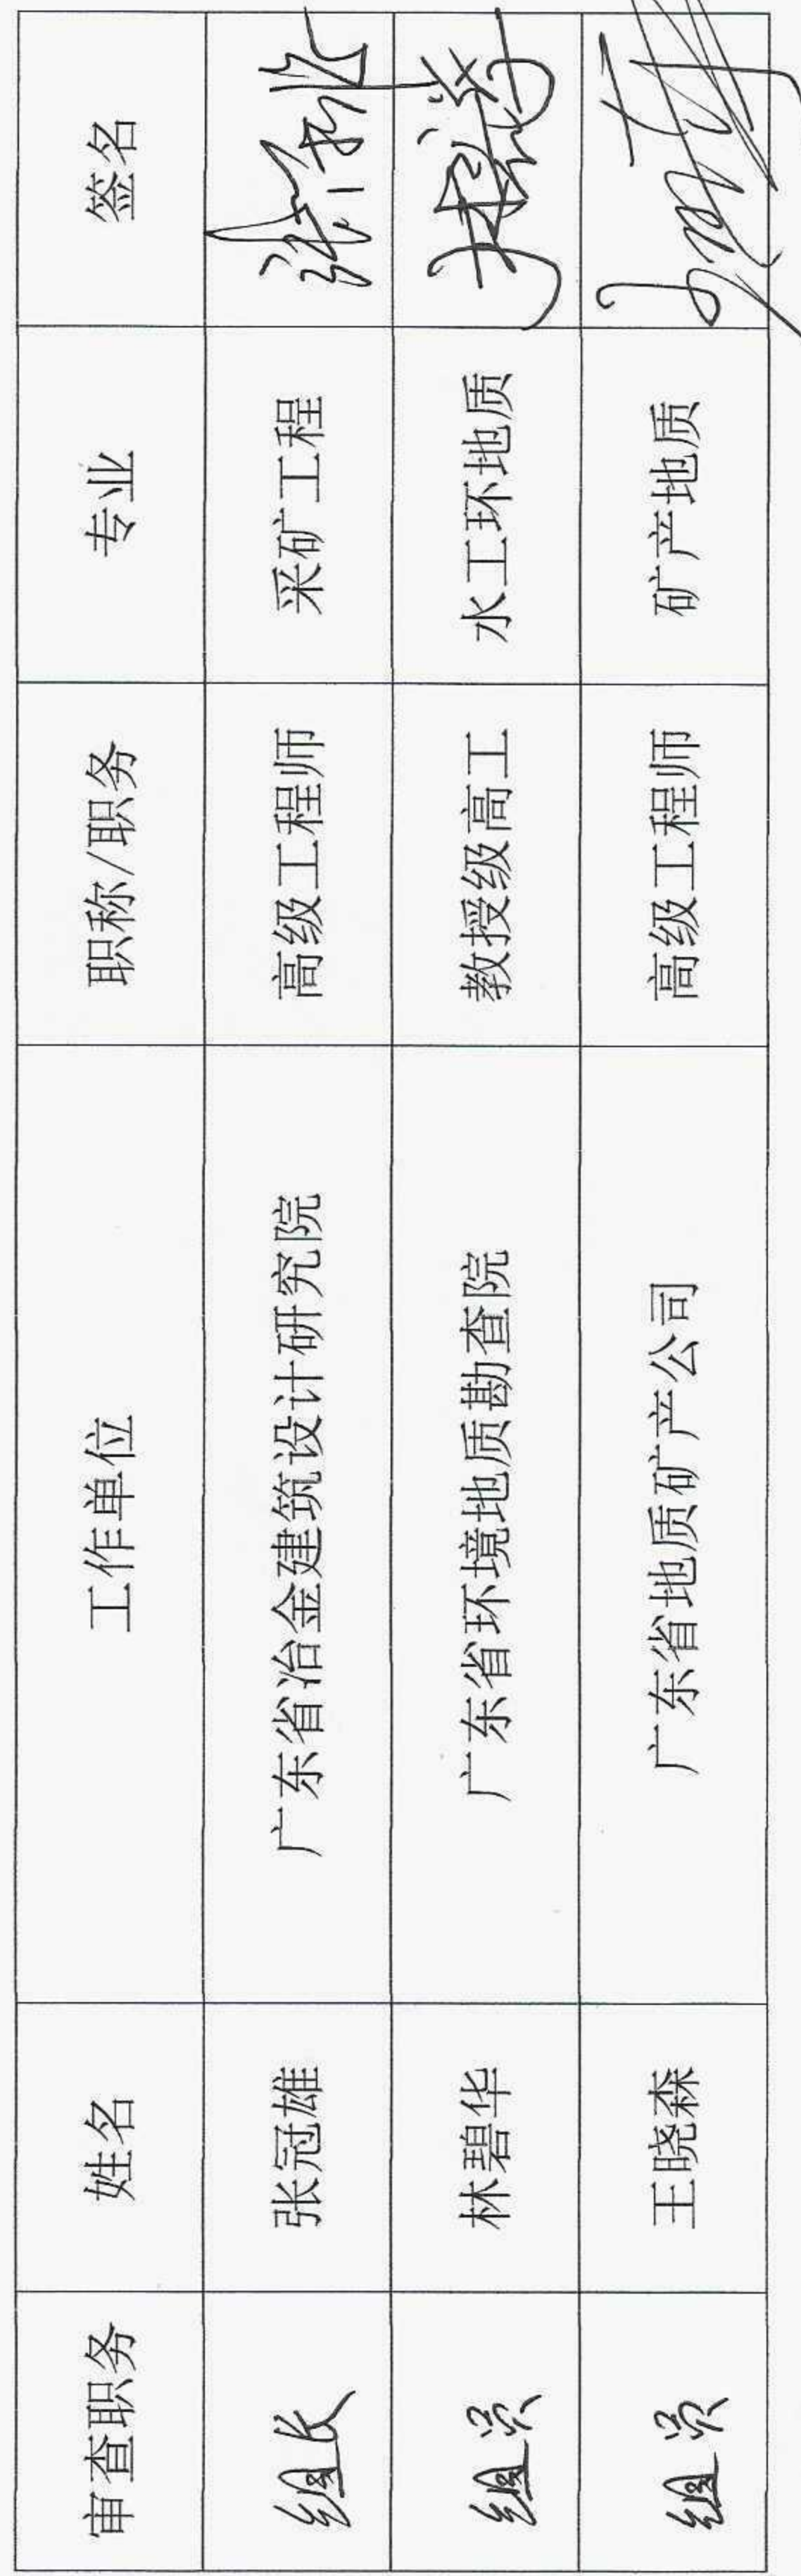 审查职务 姓名 工作单位 职称/职务 专业 签名
组长 张冠雄 广东省冶金建筑设计研究院 高级工程师 采矿工程
组员 林碧华 广东省环境地质勘查院 教授级高工 水工环地质
组员 王晓森 广东省地质矿产公司 高级工程师 矿产地质